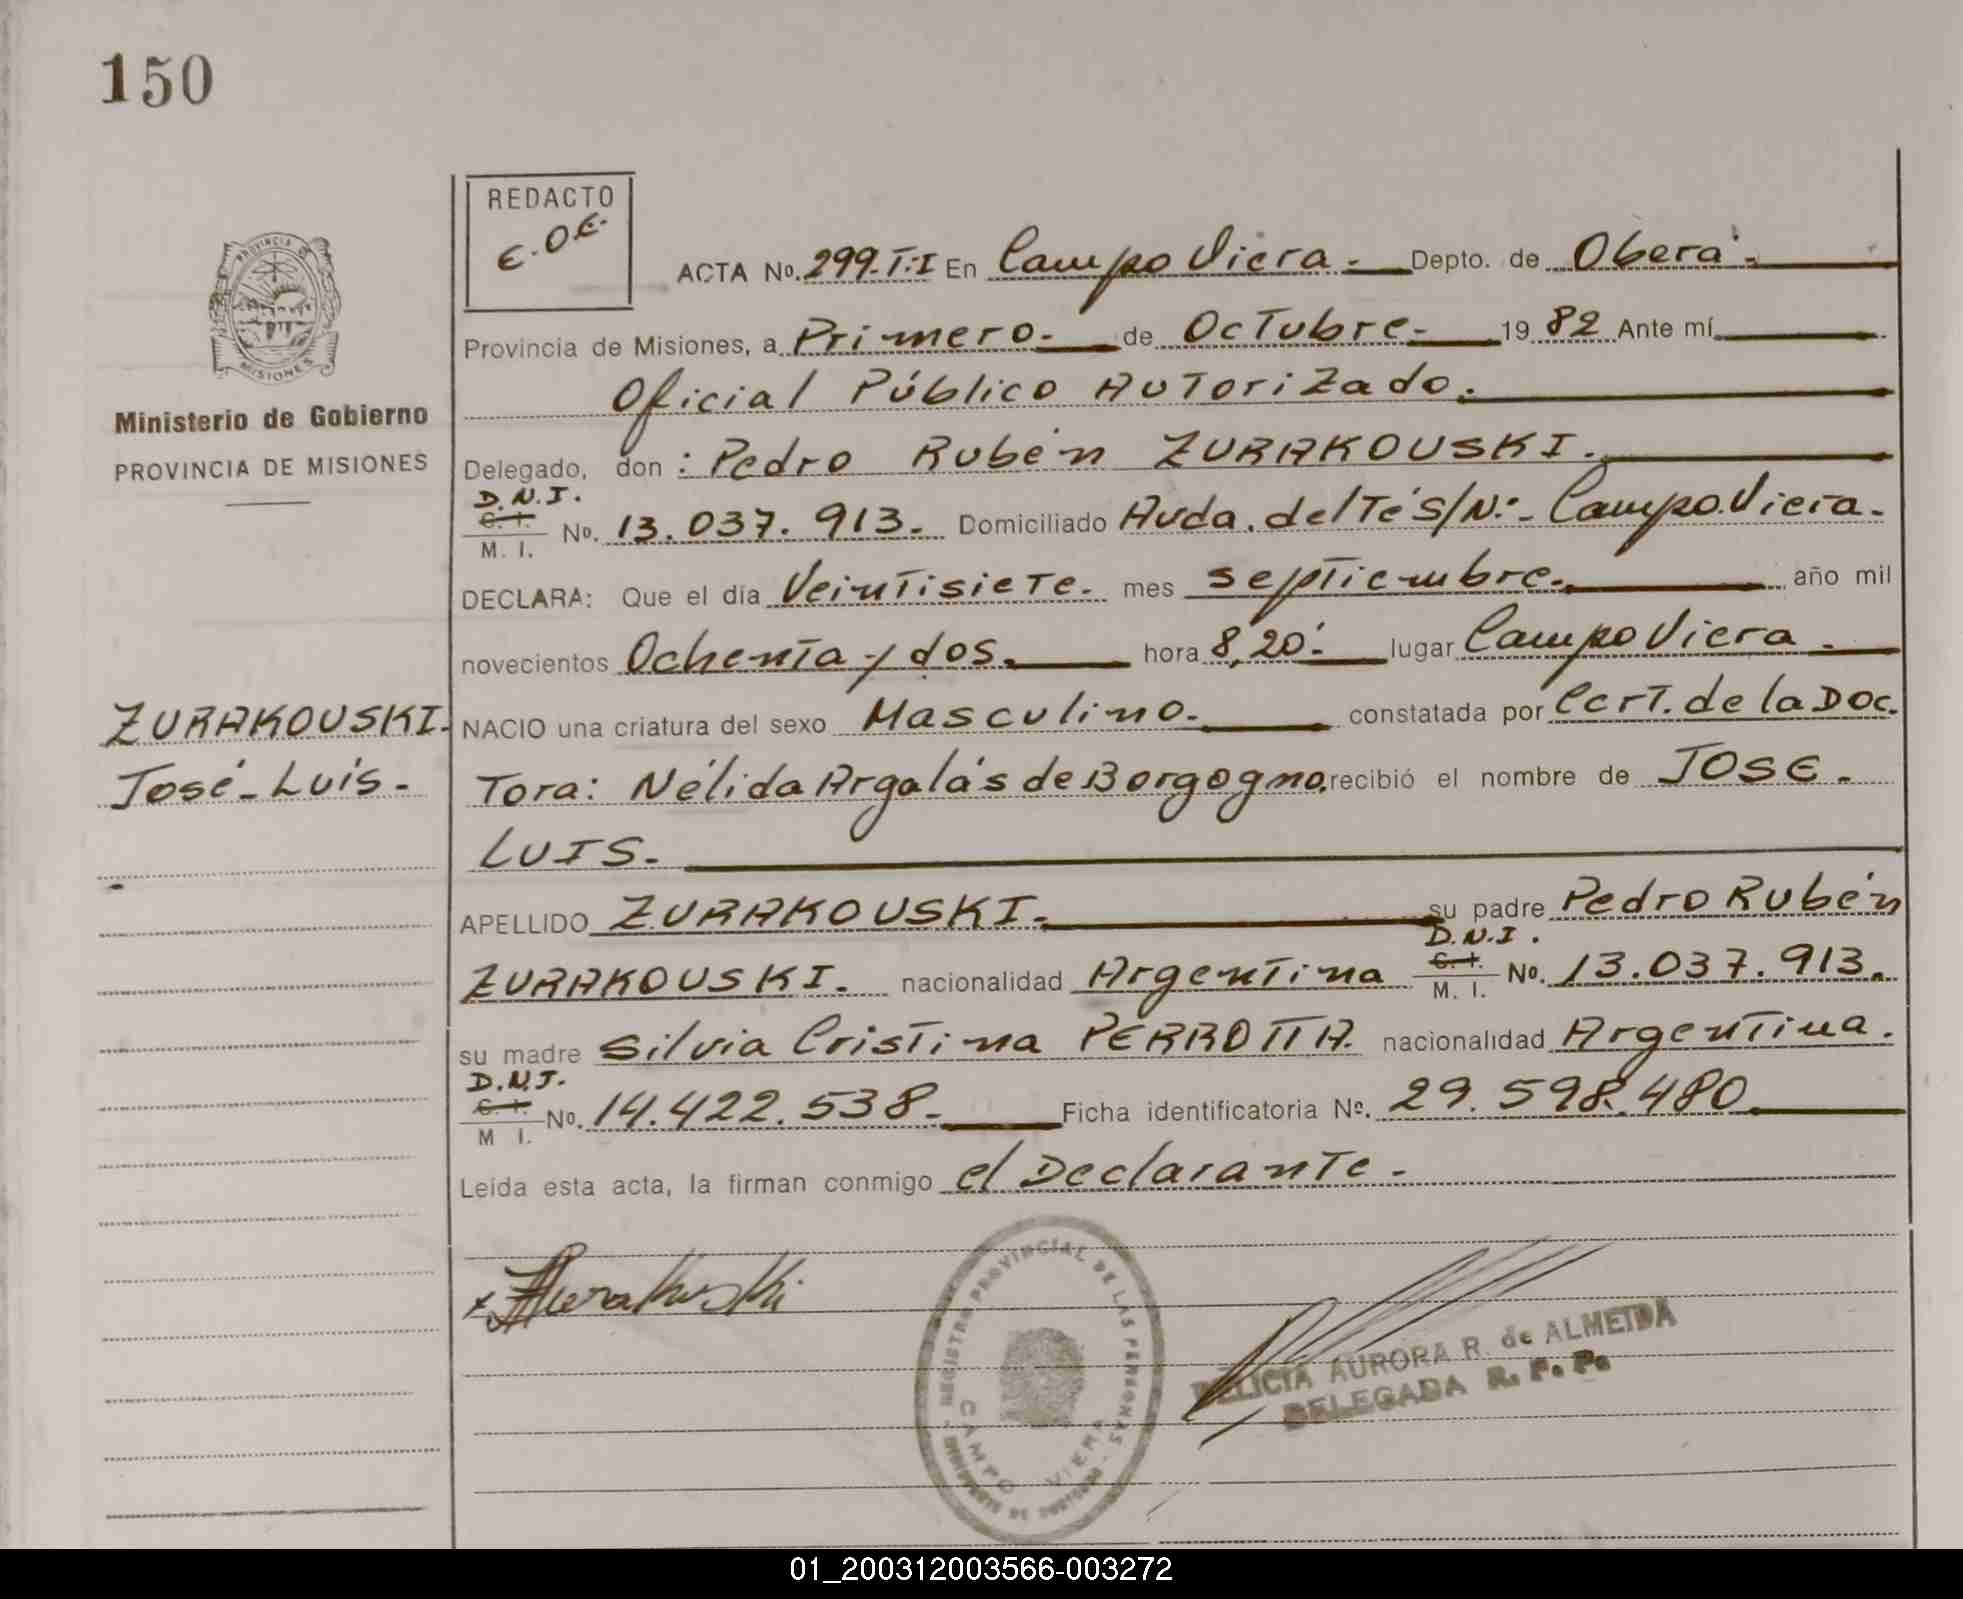 150
REDACTO
E.O.E.
ACTA No. 299.T:I En Campo Viera.- Depto. de Oberá.-
Provincia de Misiones, a Primero.- de Octubre.- 1982 Ante mí
Oficial Público Autorizado.
PROVINCIA DE MISIONES
Ministerio de Gobierno
PROVINCIA DE MISIONES
Delegado, don: Pedro Rubén ZURAKOUSKI.
D.N.I.
C. I.
M. I. No. 13.037.913. Domiciliado Avda. del Té S/Nº.- Campo Viera.-
DECLARA: Que el día Veintisiete.- mes Septiembre.- año mil
novecientos Ochenta y dos.- hora 8,20´.- lugar Campo Viera.-
ZURAKOUSKI.
José-Luis.-
NACIO una criatura del sexo Masculino.- constatada por Cert. de la Doc.
Tora: Nélida Argalás de Borgogno. recibió el nombre de JOSE.-
LUIS.-
APELLIDO ZURAKOUSKI.- su padre Pedro Rubén
ZURAKOUSKI.- nacionalidad Argentina D.N.I. C. I. M. I. No. 13.037.913.
su madre Silvia Cristina PERROTTA. nacionalidad Argentina.
D.N.I.
C. I.
M I. No. 14.422.538.- Ficha identificatoria Nº. 29.598.480
Leída esta acta, la firman conmigo el Declarante.-
x Zurakuski
REGISTRO PROVINCIAL DE LAS PERSONAS
CAMPO VIERA
DELICIA AURORA R. de ALMEIDA
DELEGADA R. P. P.
01_200312003566-003272